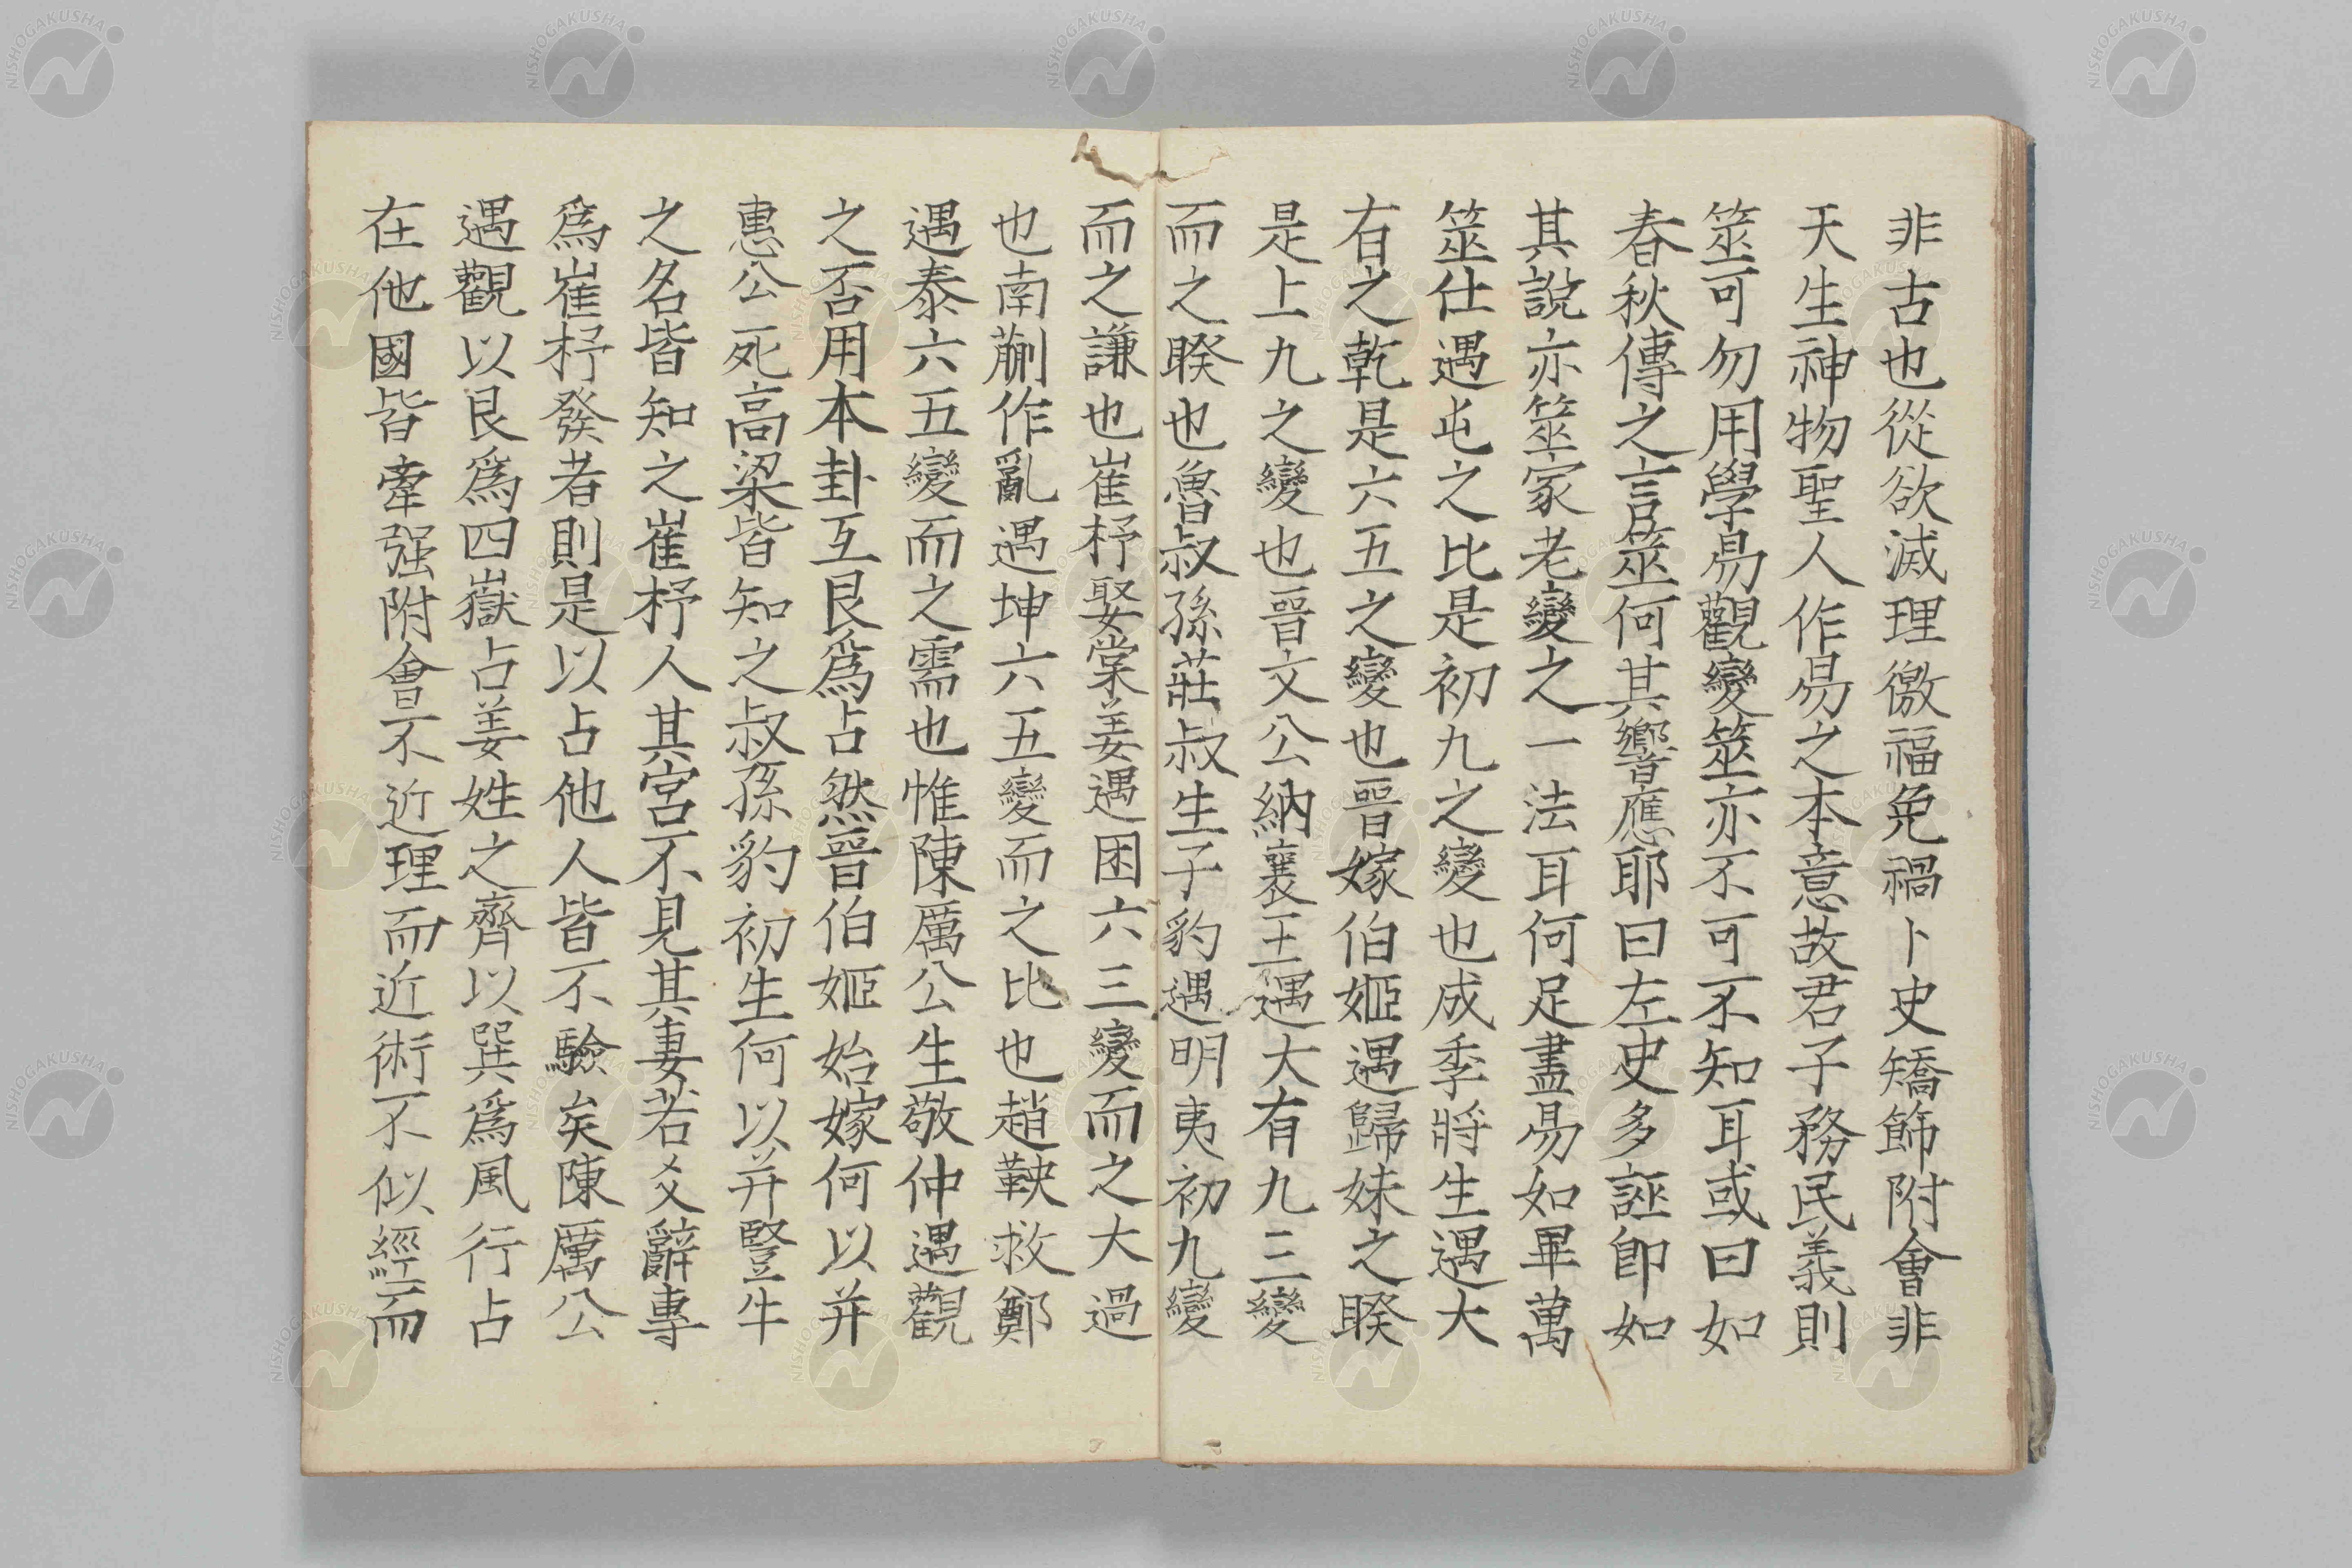 非古也從欲滅理徼福免禍卜史矯飾附會非
天生神物聖人作易之本意故君子務民義則
筮可勿用學易觀變筮亦不可不知耳或曰如
春秋傳之言筮何其響應耶曰左史多誣卽如
其說亦筮家老變之一法耳何足盡易如畢萬
筮仕遇屯之比是初九之變也成季將生遇大
有之乾是六五之變也晉嫁伯姬遇歸妹之睽
是上九之變也晉文公納襄王遇大有九三變
而之睽也魯叔孫莊叔生子豹遇明夷初九變
而之謙也崔杼娶棠姜遇困六三變而之大過
也南蒯作亂遇坤六五變而之比也趙鞅救鄭
遇泰六五變而之需也惟陳厲公生敬仲遇觀
之否用本卦互艮爲占然晉伯姬始嫁何以并
惠公死高梁皆知之叔孫豹初生何以并豎牛
之名皆知之崔杼人其宮不見其妻若爻辭專
爲崔杼發者則是以占他人皆不驗矣陳厲公
遇觀以艮爲四嶽占姜姓之齊以巽爲風行占
在他國皆牽强附會不近理而近術不似經而
NISHOGAKUSHA